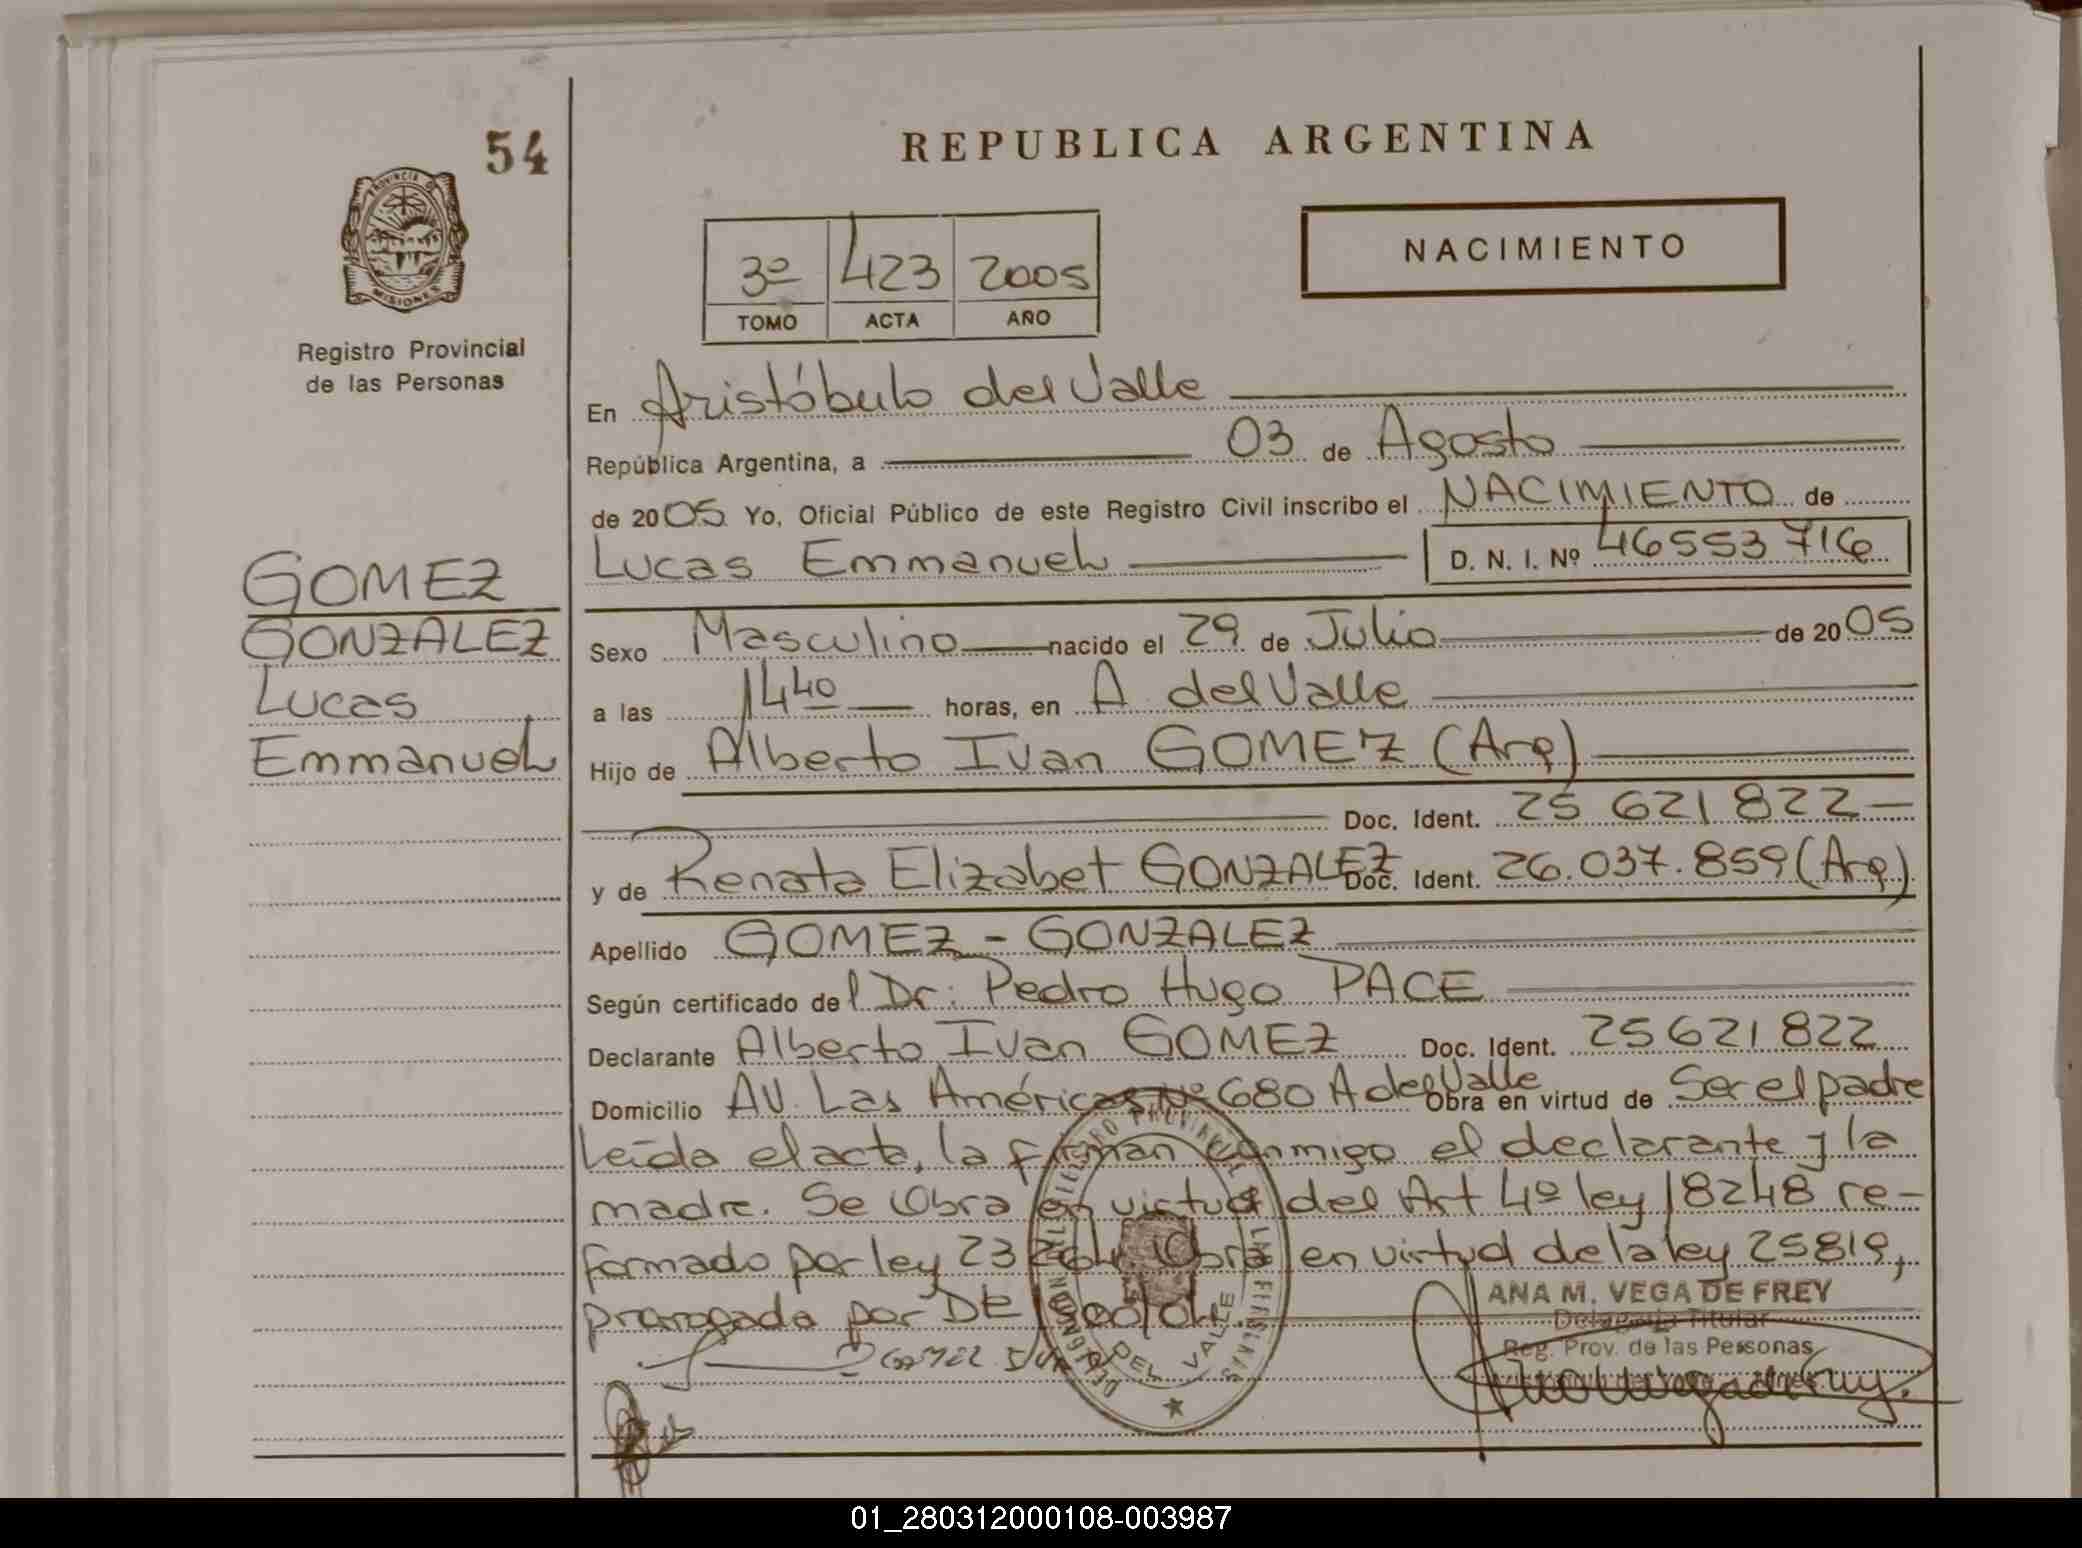 54
PROVINCIA DE
MISIONES
Registro Provincial
de las Personas
GOMEZ
GONZALEZ
Lucas
Emmanuel
REPUBLICA ARGENTINA
3º 423 2005
TOMO ACTA AÑO
NACIMIENTO
En Aristóbulo del Valle
República Argentina, a 03 de Agosto
de 2005 Yo, Oficial Público de este Registro Civil inscribo el NACIMIENTO de
Lucas Emmanuel D. N. I. Nº 46553716
Sexo Masculino nacido el 29 de Julio de 2005
a las 14 40 horas, en A. del Valle
Hijo de Alberto Ivan GOMEZ (Arg)
Doc. Ident. 25 621 822
y de Renata Elizabet GONZALEZ Doc. Ident. 26.037.859 (Arg)
Apellido GOMEZ - GONZALEZ
Según certificado del Dr. Pedro Hugo PACE
Declarante Alberto Ivan GOMEZ Doc. Ident. 25621822
Domicilio AV. Las Américas Nº 680 A del Valle Obra en virtud de Ser el padre
Leída el acta, la firman conmigo el declarante y la
madre. Se Obra en virtud del Art 4º ley 18248 re-
formado por ley 23264. Obra en virtud de la ley 25819,
prorrogada por
ANA M. VEGA DE FREY
Delegada Titular
Reg. Prov. de las Personas
DEL VALLE
01_280312000108-003987